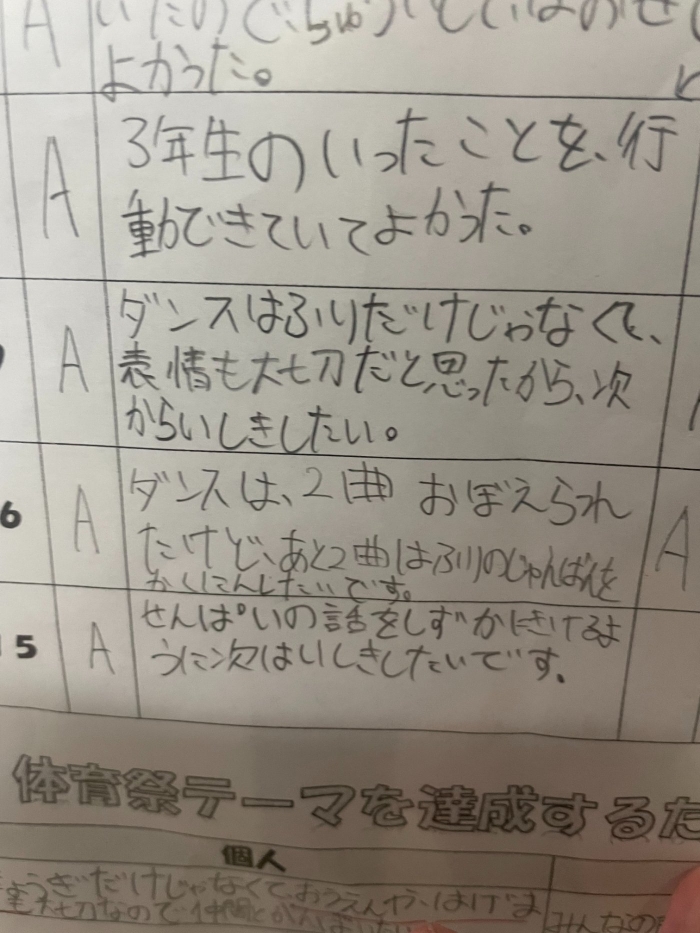 A
よかった。
A
3年生のいったことを、行
動できていてよかった。
A
ダンスはふりだけじゃなくて、
表情も大切だと思ったから、次
からいしきしたい。
6
A
ダンスは、2曲 おぼえられ
たけど、あと2曲はふりのじゅんばんを
かくにんしたいです。
A
15
A
せんぱいの話をしずかにきけるよ
うに次はいしきしたいです。
体育祭テーマを達成するた
個人
ょうぎだけじゃなくて、おうえんや、はげま
も大切なので仲間と
みんなの